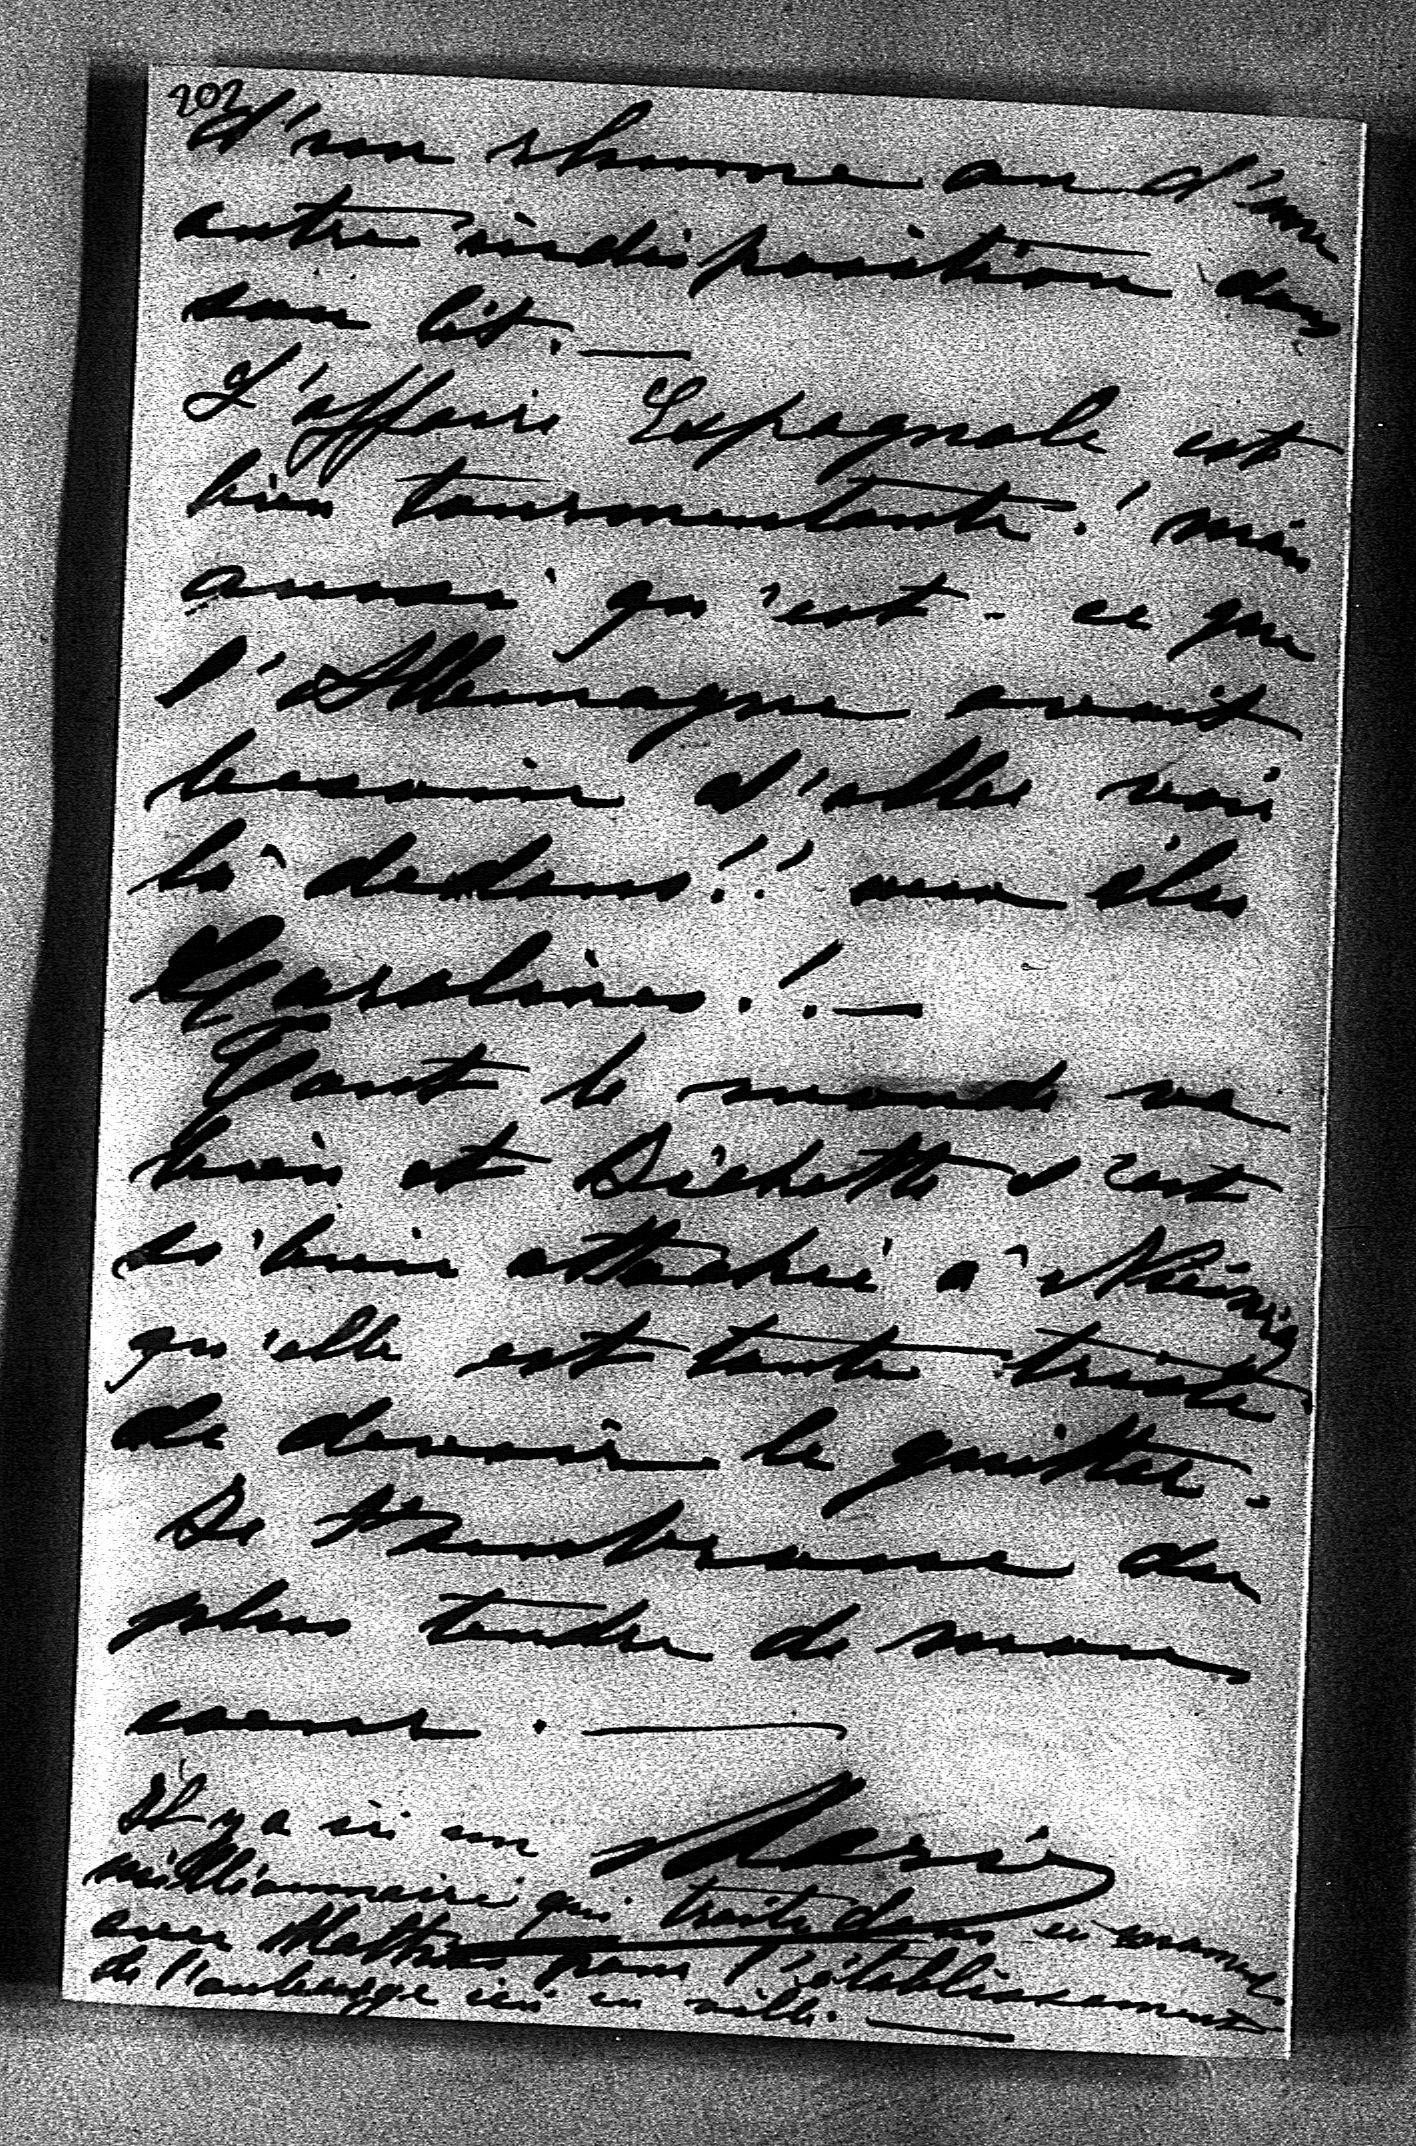 202
d'un rhume ou d'une
autre indisposition dans
son lit. —
L'affaire Espagnole est
bien tourmentante! mais
aussi qu'est-ce que
l'Allemagne avait
besoin d'aller voir
là dedans!! aux îles
Carolines!! —
Tout le monde va
bien et Bichette s'est
si bien attachée à
qu'elle est toute triste
de devoir le quitter.
Je t'embrasse du
plus tendre de mon
coeur. —
Marie
Il y a ici un
millionnaire qui traite dans ce moment
avec Mathias pour l'établissement
de l'auberge ici en ville. —